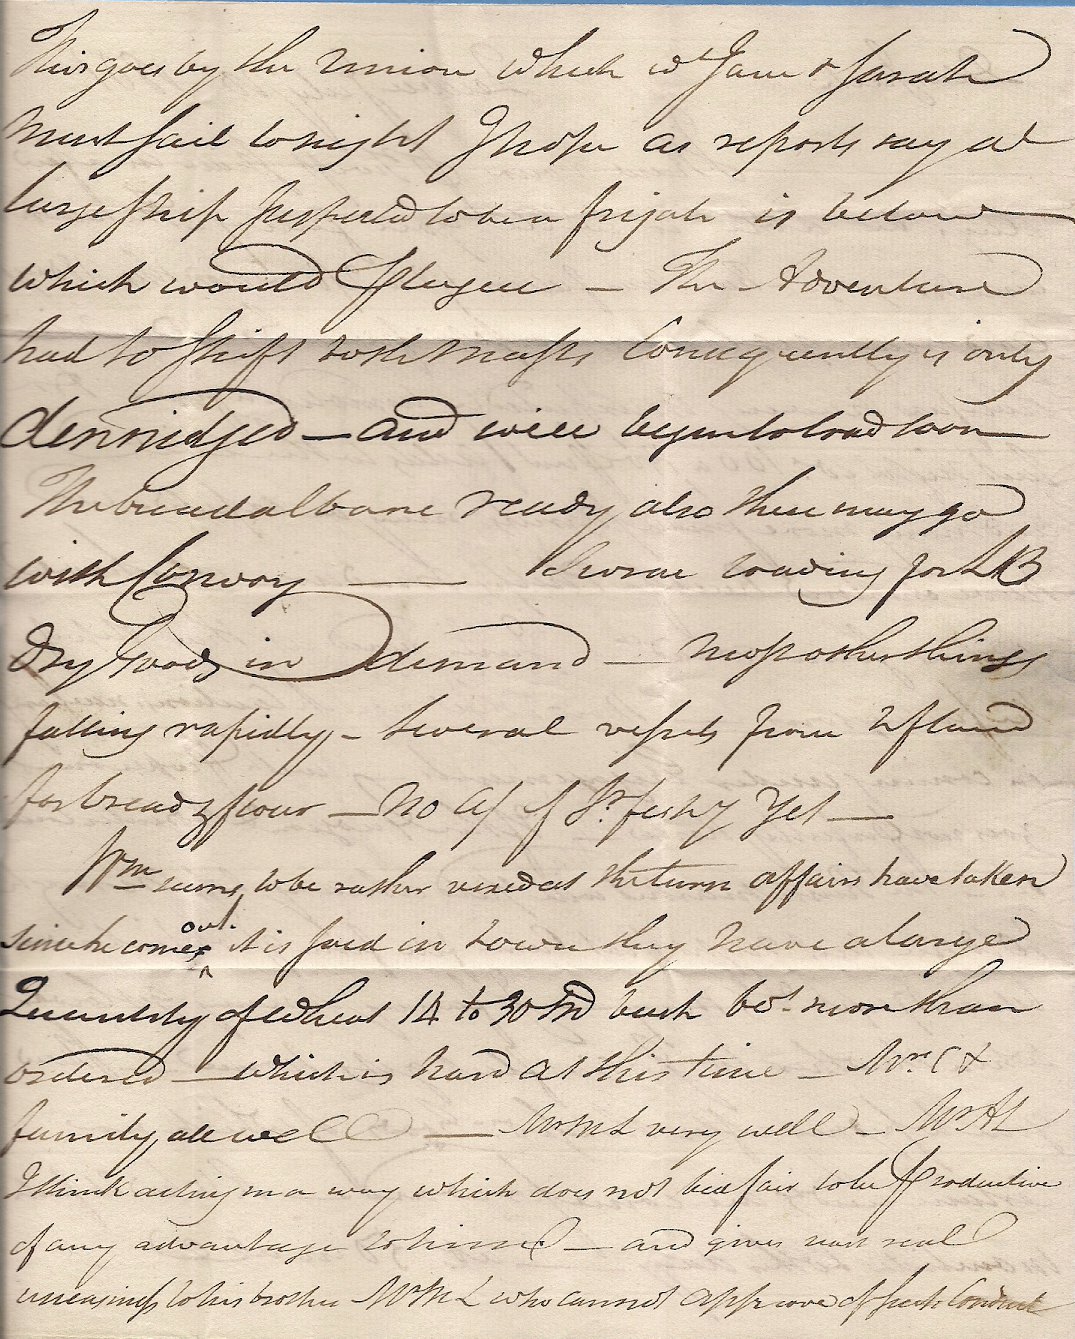 This goes by the Union which wt Jane & Sarah
must sail tonight I hope as reports say a
large ship suspected to be a frigate is below
which would please — The Adventure
had to shift both masts Consequently is only
— and will begin to load soon
The Breadalbane ready also these may go
with Convoy — Several loading for LB
Dry Goods in demand — most other things
falling rapidly — Several vessels from
for bread & flour — No of yet —
Wm seems to be rather vexed at the turn affairs have taken
since he come out. it is said in town they have a large
Quantity of wheat 14 to 30 Md bush bot. more than
ordered — which is hard at this time — Mr. C &
family all well — Mr ML very well — Mr AL
I think acting in a way which does not bid fair to be productive
of any advantage to himself — and gives real
uneasiness to his brother Mr ML who cannot approve of such Conduct